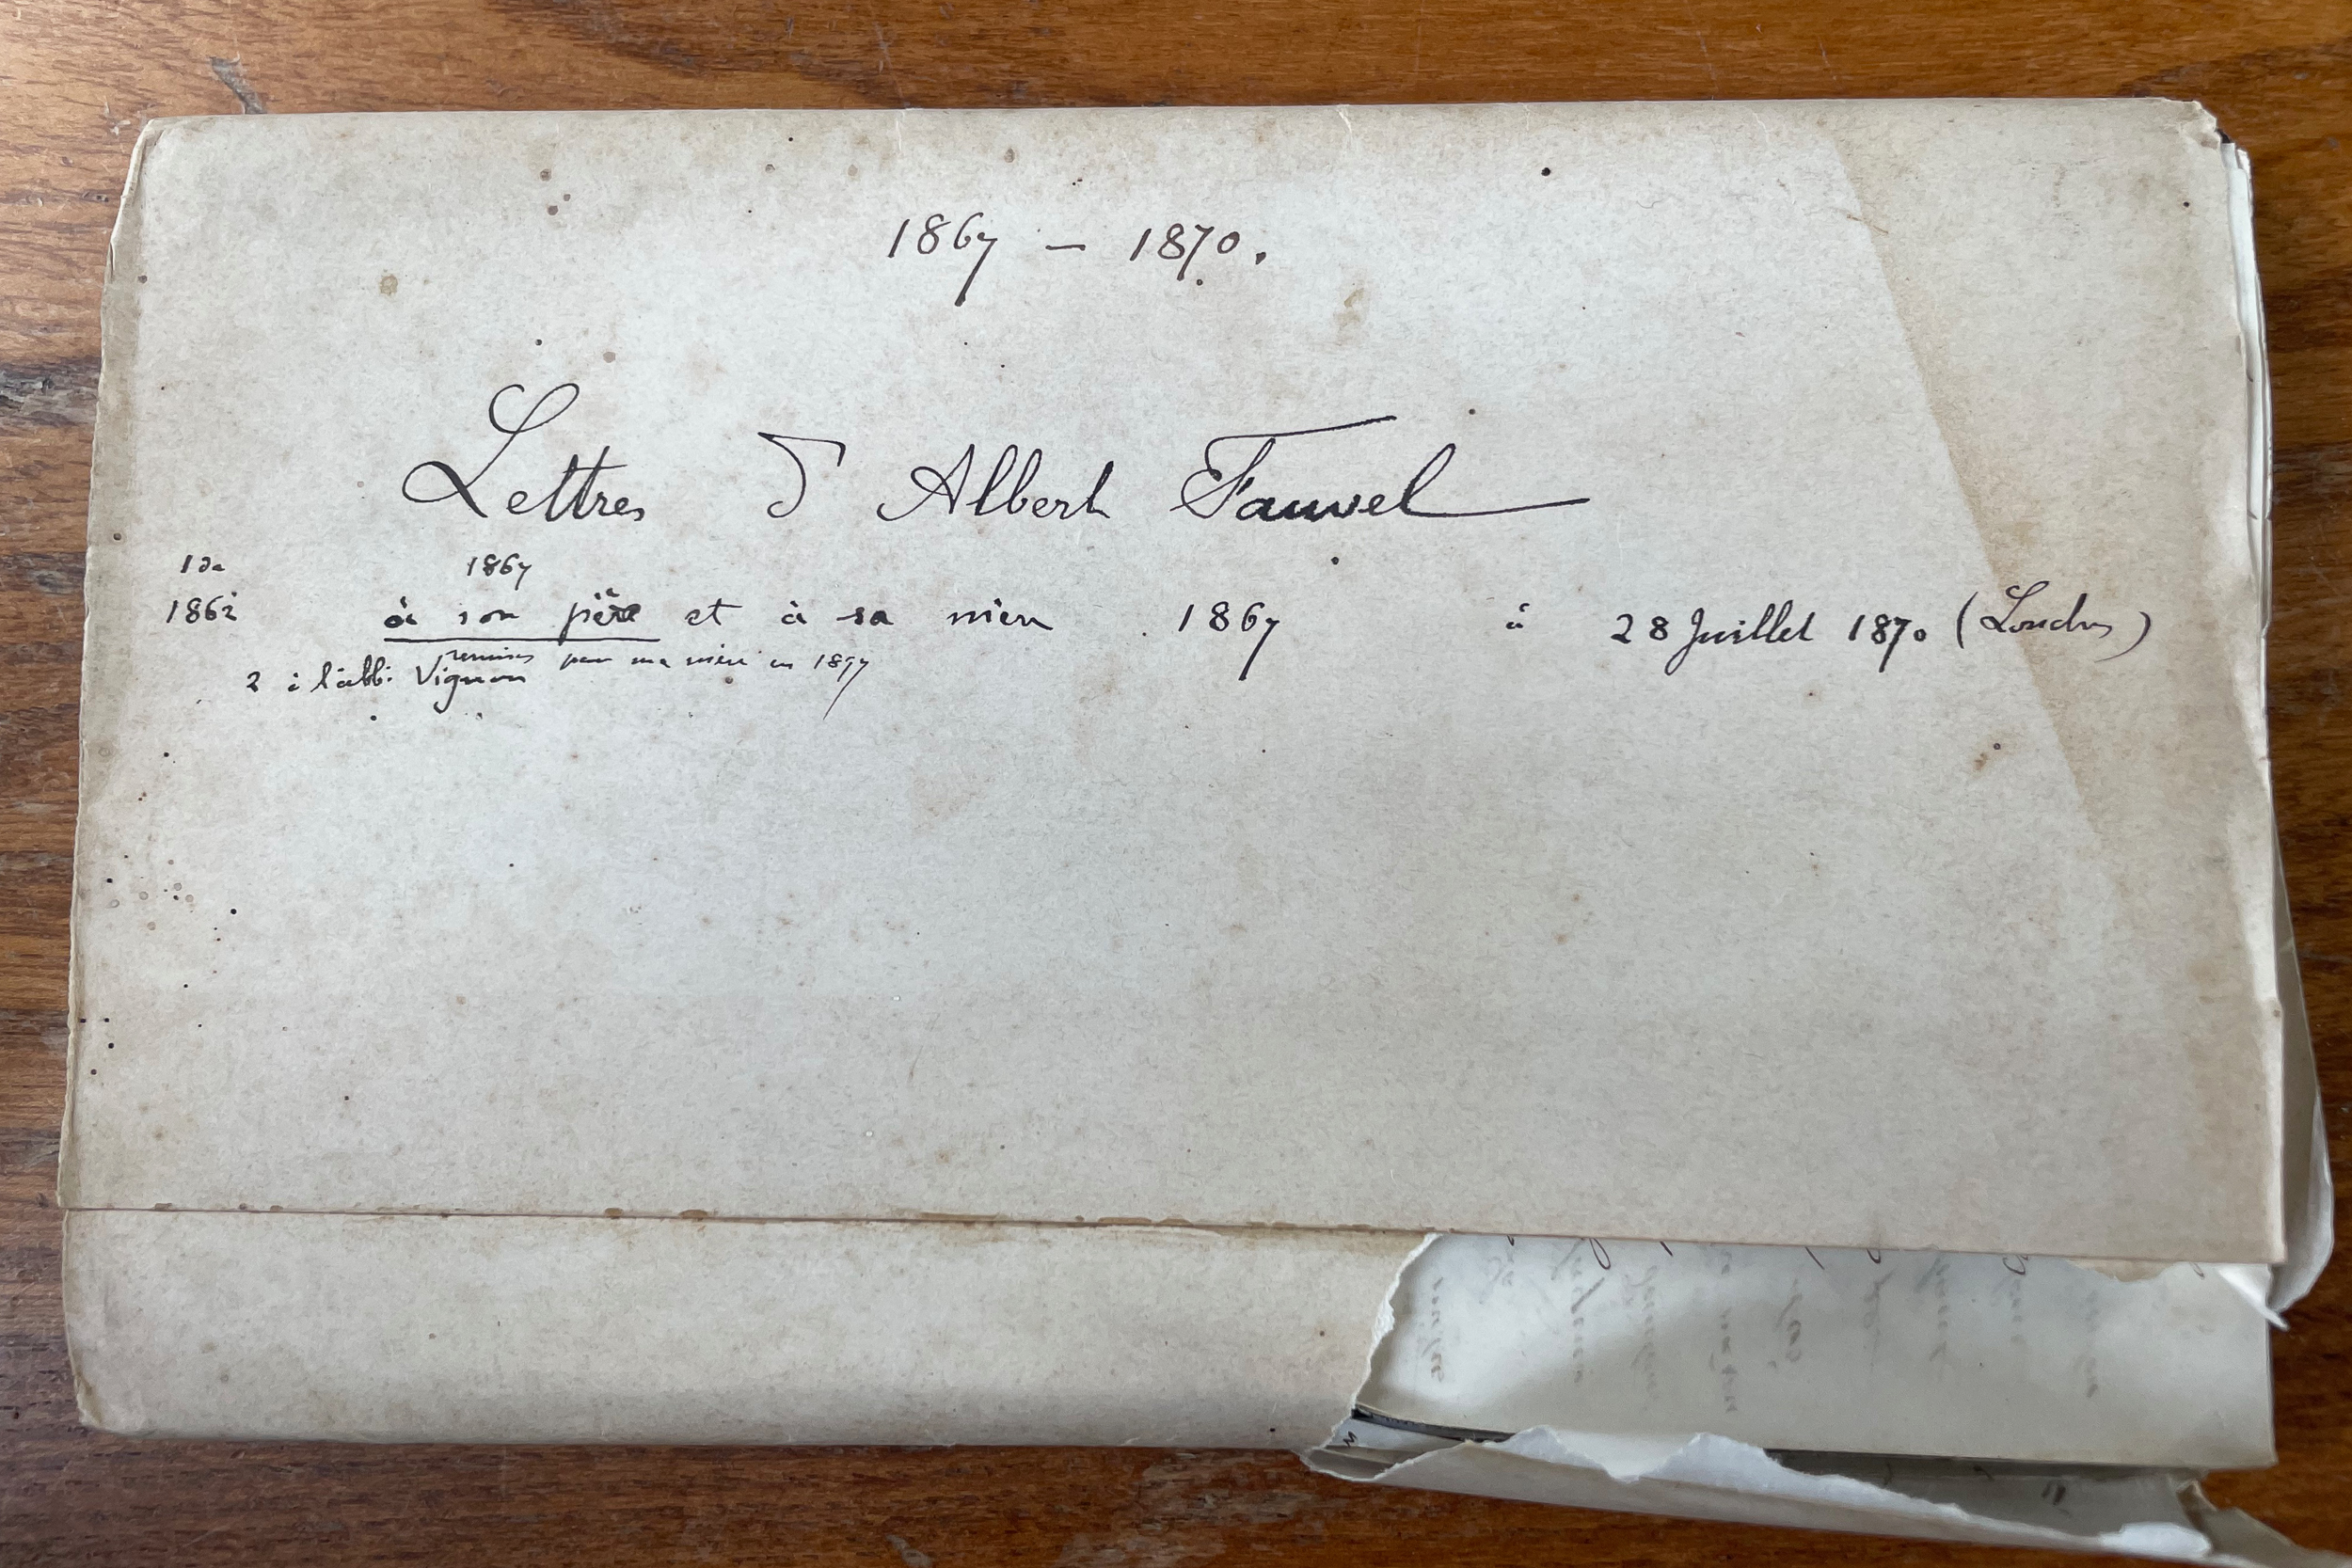 1867 – 1870.
Lettres d'Albert Fauvel
1 de 1867
1862 à son père et à sa mère 1867 à 28 Juillet 1870 (Londres)
remises par ma mère en 1897
2 à l'abbé Vignon